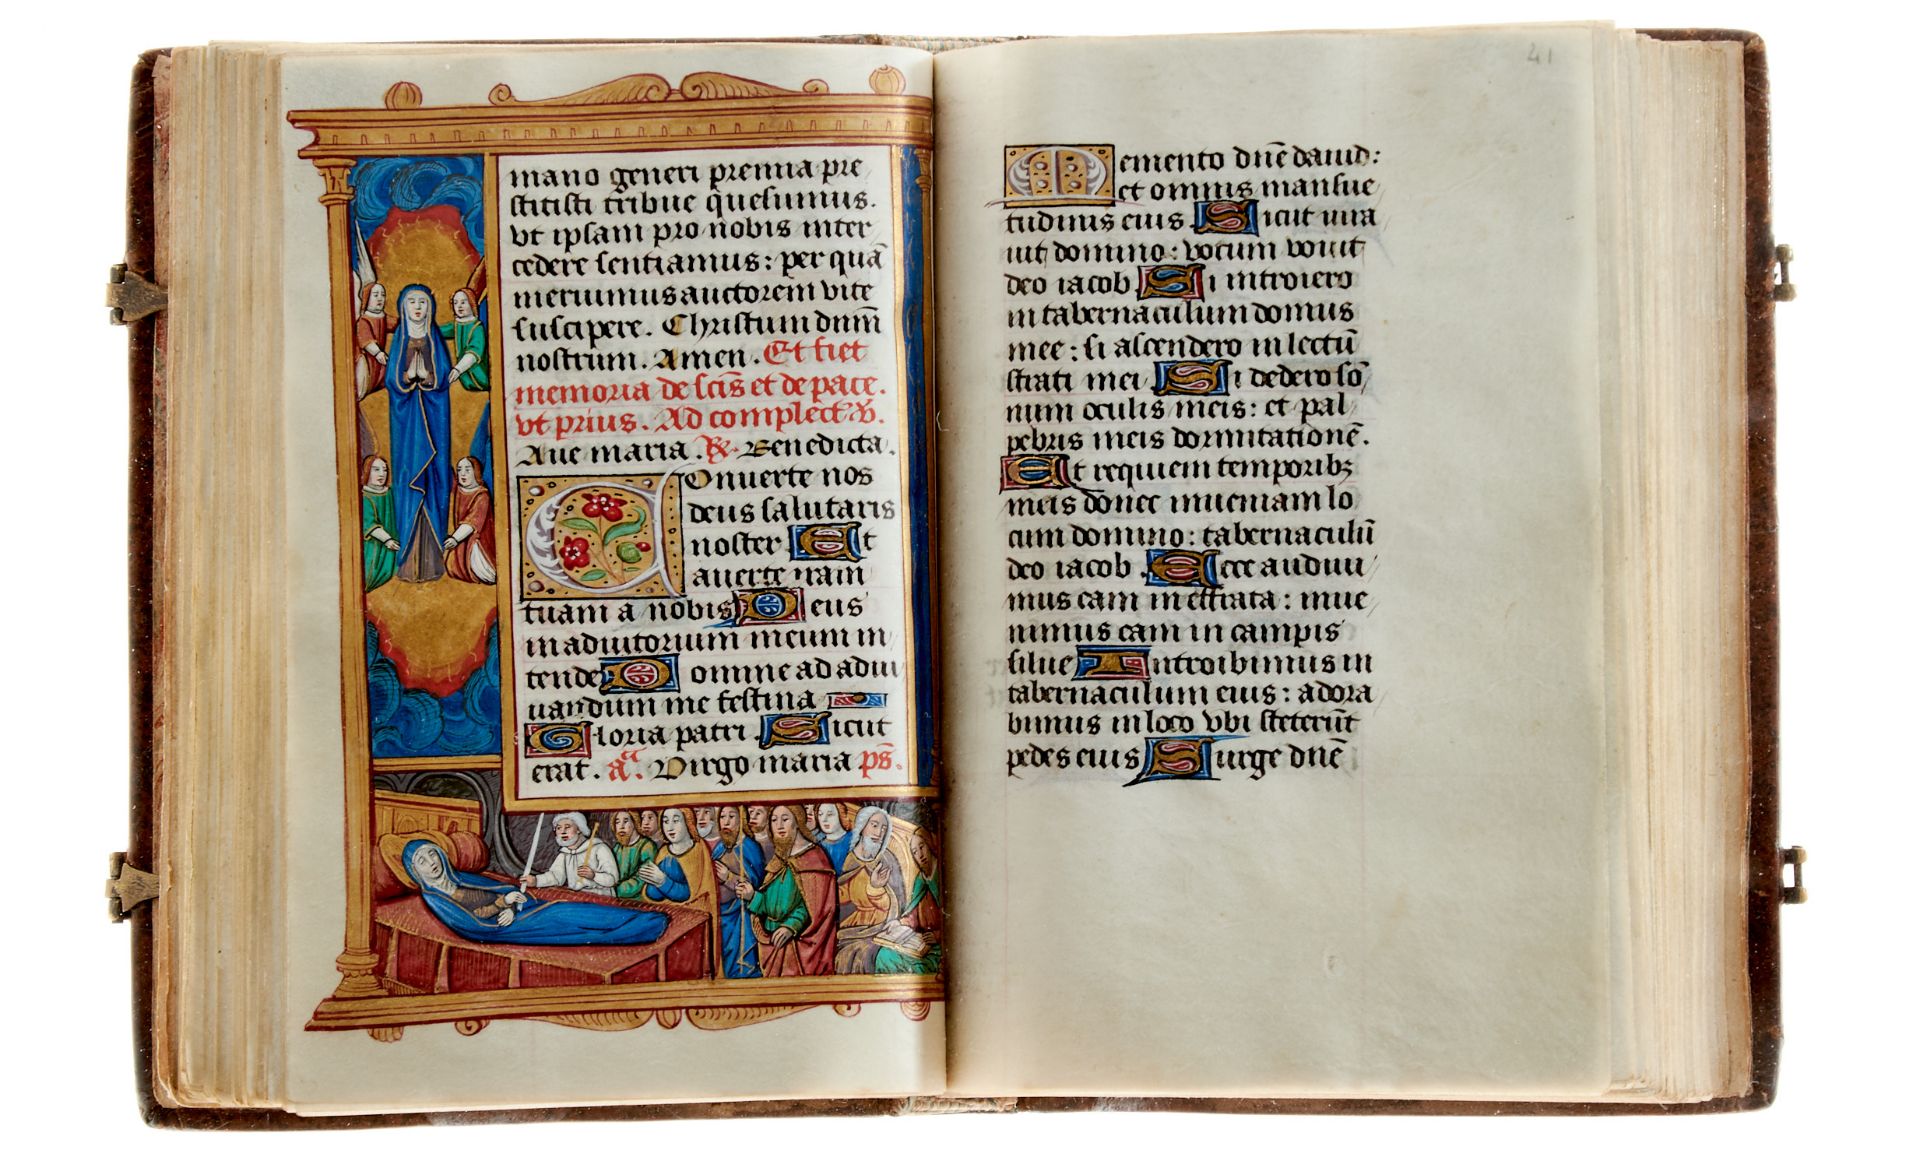 mano generi premia pre
stitisti tribue quesumus.
vt ipsam pro nobis inter
cedere sentiamus: per quā
meruimus auctorem vite
suscipere. Christum dn̄m
nostrum. Amen. Et fiet
memoria de sc̄is et de pace.
vt prius. Ad complect̄. ꝟ.
Aue maria. ℟. Benedicta.
Conuerte nos
deus salutaris
noster Et
auerte iram
tuam a nobis Deus
in adiutorium meum in
tende Domine ad adiu
uandum me festina
Gloria patri. Sicut
erat. an̄a. Virgo maria ps̄.
41
Memento dn̄e dauid:
et omnis mansue
tudinis eius Sicut iura
uit domino: votum vouit
deo iacob Si introiero
in tabernaculum domus
mee: si ascendero in lectū
strati mei. Si dedero sō
num oculis meis: et pal
pebris meis dormitationē.
Et requiem temporibꝫ
meis donec inueniam lo
cum domino: tabernaculū
deo iacob. Ecce audiui
mus eam in effrata: inue
nimus eam in campis
silue Introibimus in
tabernaculum eius: adora
bimus in loco vbi steterūt
pedes eius Surge dn̄e